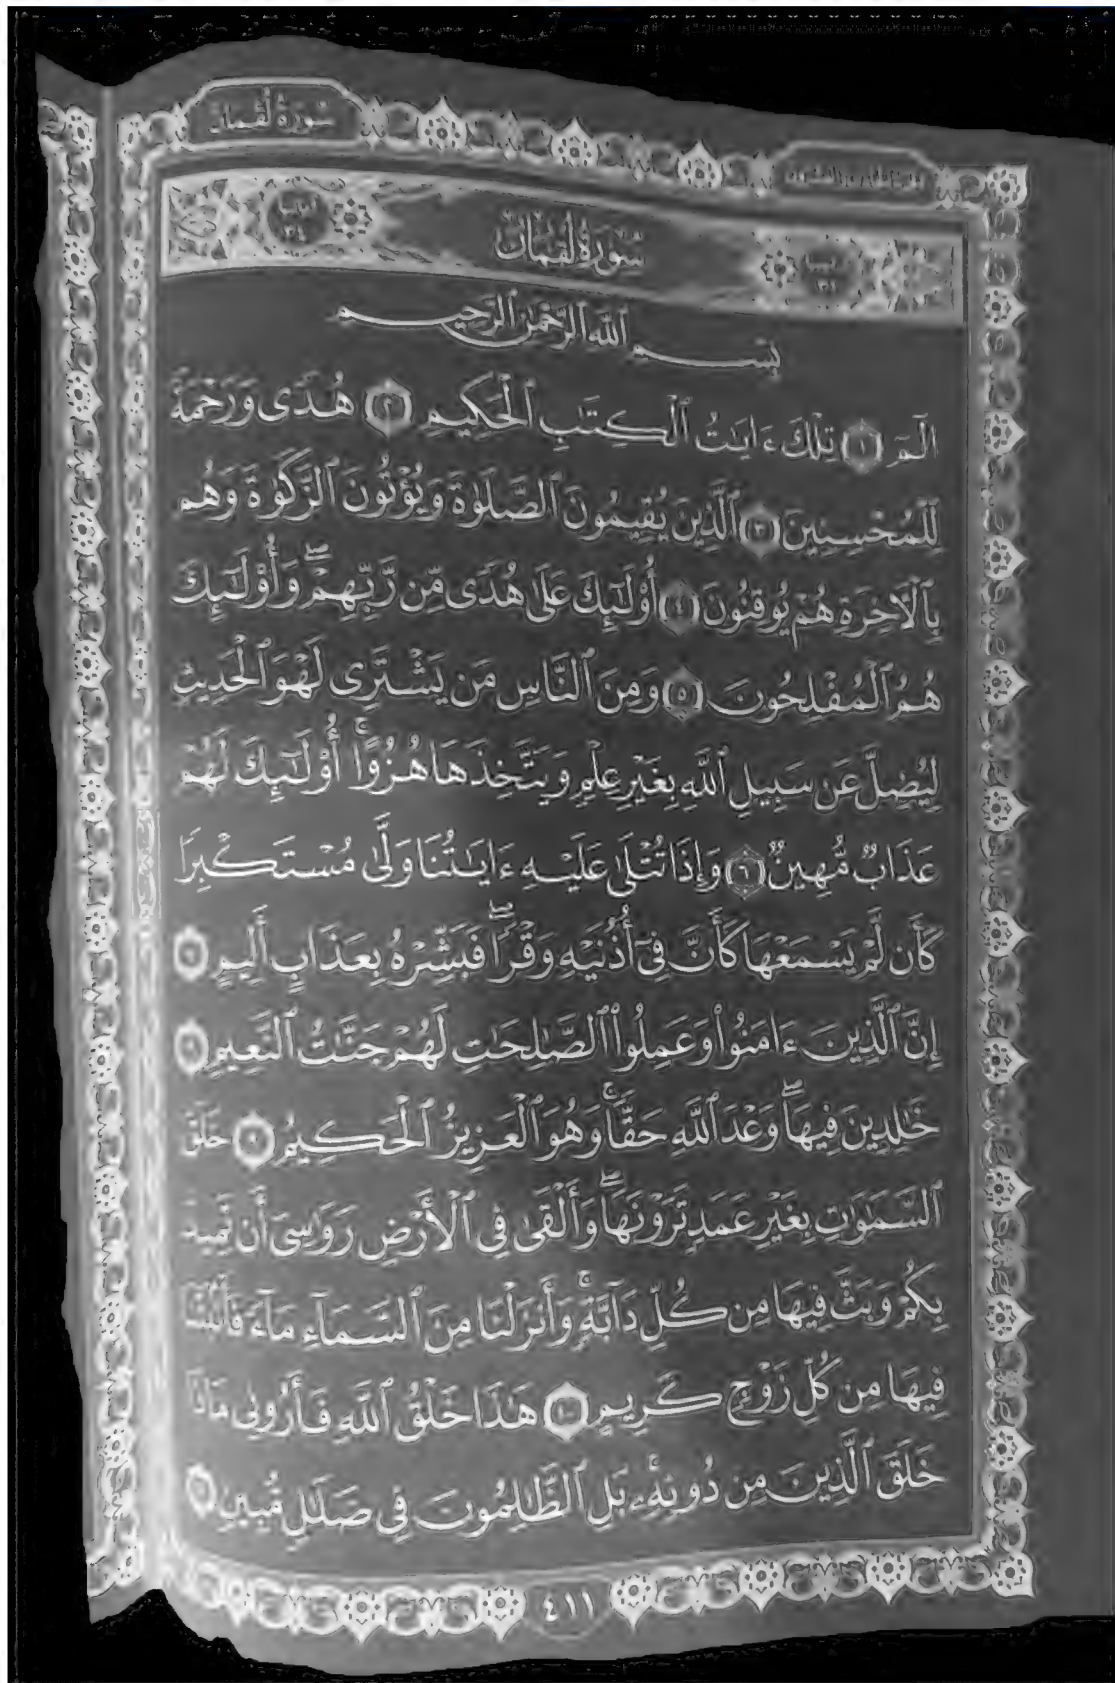 سُورَةُ لُقْمَانَ
سُورَةُ لُقْمَانَ
بِسْمِ ٱللَّهِ ٱلرَّحْمَٰنِ ٱلرَّحِيمِ
الٓمٓ ١ تِلْكَ ءَايَٰتُ ٱلْكِتَٰبِ ٱلْحَكِيمِ ٢ هُدًى وَرَحْمَةً
لِّلْمُحْسِنِينَ ٣ ٱلَّذِينَ يُقِيمُونَ ٱلصَّلَوٰةَ وَيُؤْتُونَ ٱلزَّكَوٰةَ وَهُم
بِٱلْءَاخِرَةِ هُمْ يُوقِنُونَ ٤ أُو۟لَٰٓئِكَ عَلَىٰ هُدًى مِّن رَّبِّهِمْ ۖ وَأُو۟لَٰٓئِكَ
هُمُ ٱلْمُفْلِحُونَ ٥ وَمِنَ ٱلنَّاسِ مَن يَشْتَرِى لَهْوَ ٱلْحَدِيثِ
لِيُضِلَّ عَن سَبِيلِ ٱللَّهِ بِغَيْرِ عِلْمٍ وَيَتَّخِذَهَا هُزُوًا ۚ أُو۟لَٰٓئِكَ لَهُمْ
عَذَابٌ مُّهِينٌ ٦ وَإِذَا تُتْلَىٰ عَلَيْهِ ءَايَٰتُنَا وَلَّىٰ مُسْتَكْبِرًا
كَأَن لَّمْ يَسْمَعْهَا كَأَنَّ فِىٓ أُذُنَيْهِ وَقْرًا ۖ فَبَشِّرْهُ بِعَذَابٍ أَلِيمٍ ٧
إِنَّ ٱلَّذِينَ ءَامَنُوا۟ وَعَمِلُوا۟ ٱلصَّٰلِحَٰتِ لَهُمْ جَنَّٰتُ ٱلنَّعِيمِ ٨
خَٰلِدِينَ فِيهَا ۖ وَعْدَ ٱللَّهِ حَقًّا ۚ وَهُوَ ٱلْعَزِيزُ ٱلْحَكِيمُ ٩ خَلَقَ
ٱلسَّمَٰوَٰتِ بِغَيْرِ عَمَدٍ تَرَوْنَهَا ۖ وَأَلْقَىٰ فِى ٱلْأَرْضِ رَوَٰسِىَ أَن تَمِيدَ
بِكُمْ وَبَثَّ فِيهَا مِن كُلِّ دَآبَّةٍ ۚ وَأَنزَلْنَا مِنَ ٱلسَّمَآءِ مَآءً فَأَنۢبَتْنَا
فِيهَا مِن كُلِّ زَوْجٍ كَرِيمٍ ١٠ هَٰذَا خَلْقُ ٱللَّهِ فَأَرُونِى مَاذَا
خَلَقَ ٱلَّذِينَ مِن دُونِهِۦ ۚ بَلِ ٱلظَّٰلِمُونَ فِى ضَلَٰلٍ مُّبِينٍ ١١
٤١١